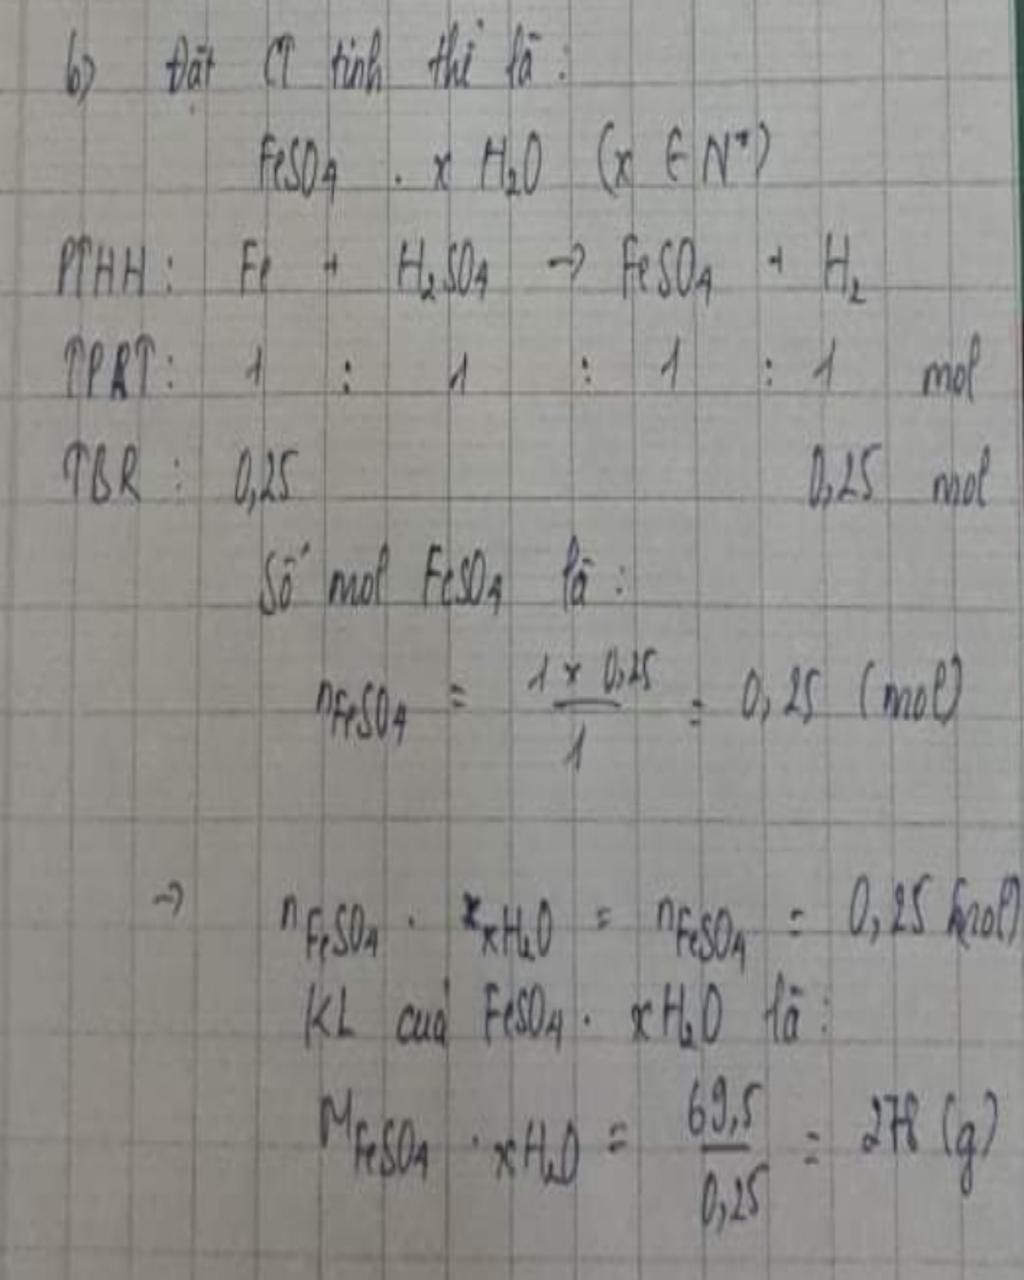 b) Đặt CT tinh thể là :
FeSO4 . x H2O (x ∈ N*)
PTHH : Fe + H2SO4 → FeSO4 + H2
TPRT : 1 : 1 : 1 : 1 mol
TBR : 0,25 0,25 mol
Số mol FeSO4 là :
nFeSO4 = 1 x 0,25 / 1 = 0,25 (mol)
→ nFeSO4 . xH2O = nFeSO4 = 0,25 (mol)
KL của FeSO4 . xH2O là :
MFeSO4 . xH2O = 69,5 / 0,25 = 278 (g)